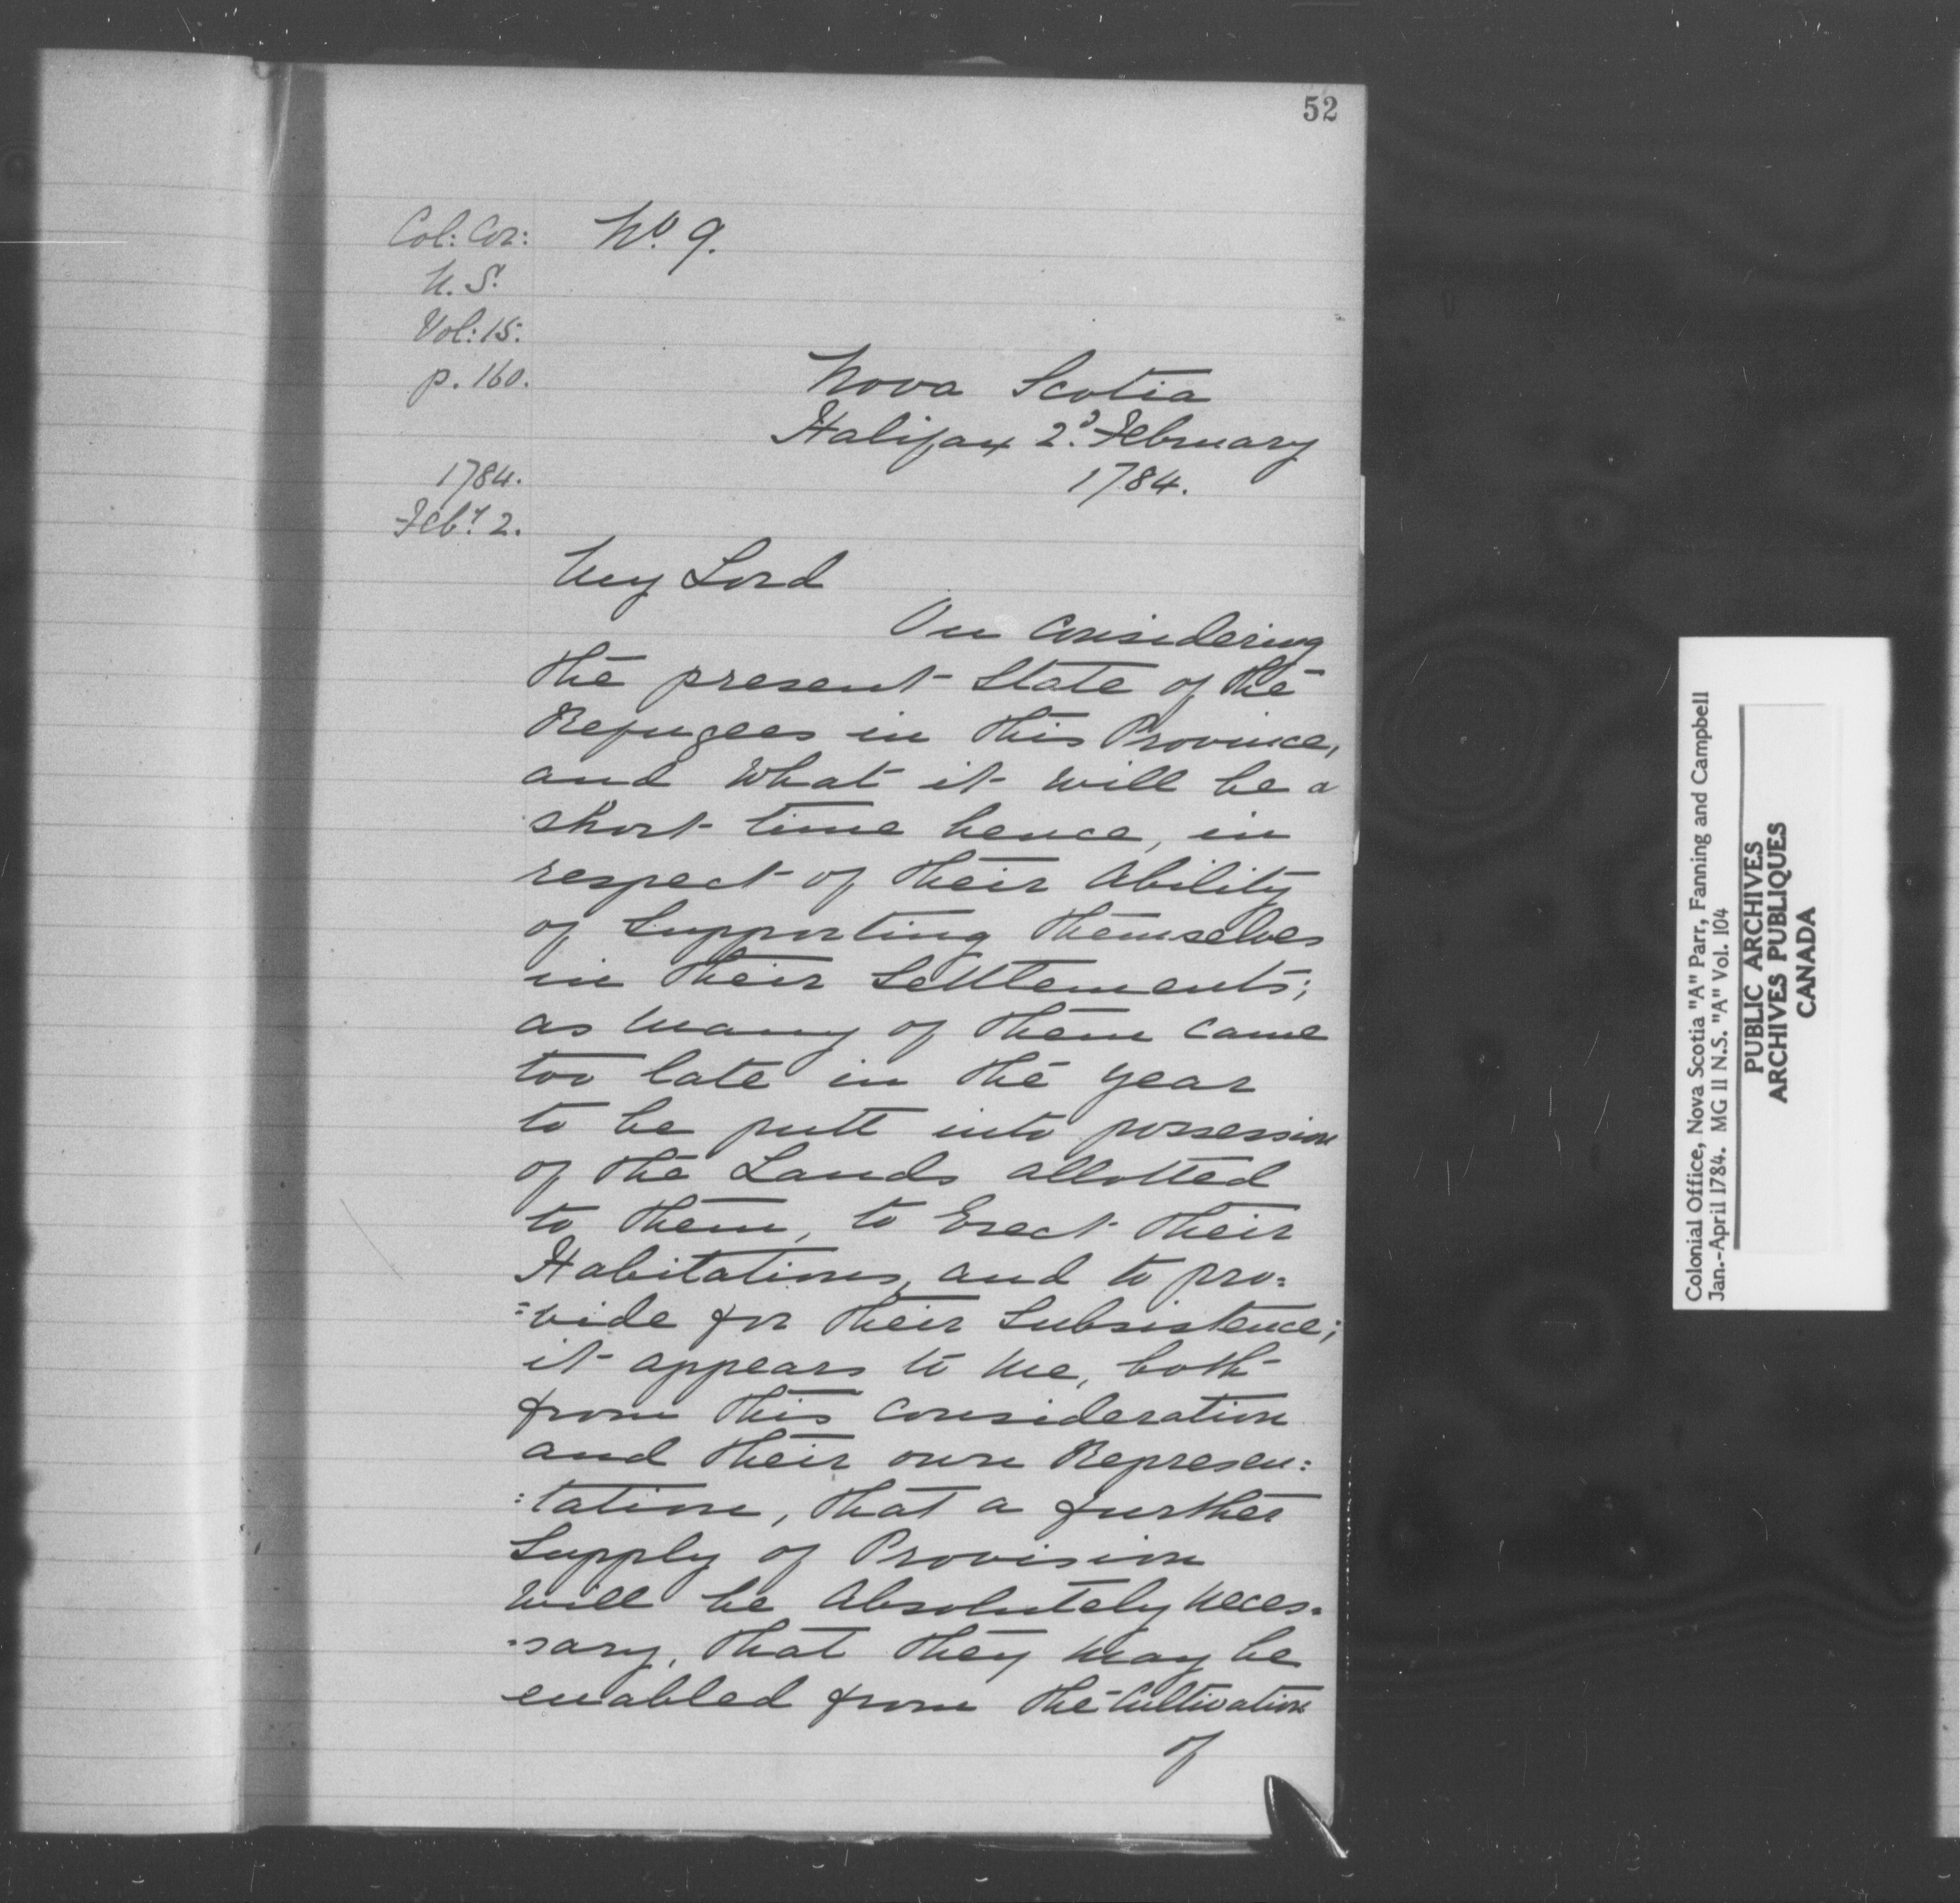 52
Col: Cor:
N. S.
Vol: 15:
p. 160.
1784.
Feby. 2.
No. 9.
Nova Scotia
Halifax 2d. February
1784.
My Lord
On Considering
the present State of the
Refugees in this Province,
and what it will be a
short time hence, in
respect of their Ability
of Supporting themselves
in their Settlements;
as many of them came
too late in the year
to be putt into possession
of the Lands allotted
to them, to Erect their
Habitations, and to pro:
:vide for their Subsistence;
it appears to me, both
from this Consideration
and their own Represen:
:tation, that a further
Supply of Provision
will be Absolutely neces:
:sary, that they may be
enabled from the Cultivation
of
Colonial Office, Nova Scotia "A" Parr, Fanning and Campbell
Jan.-April 1784. MG 11 N.S. "A" Vol. 104
PUBLIC ARCHIVES
ARCHIVES PUBLIQUES
CANADA